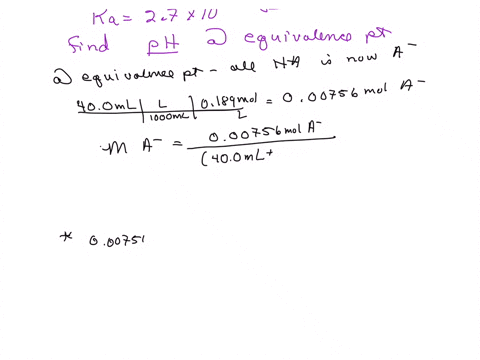 Ka = 2.7 × 10
Find pH @ equivalence pt
@ equivalence pt - all HA is now A⁻
40.0mL | L | 0.189mol = 0.00756 mol A⁻
1000mL | L
M A⁻ = 0.00756 mol A⁻
(40.0mL +
* 0.0075